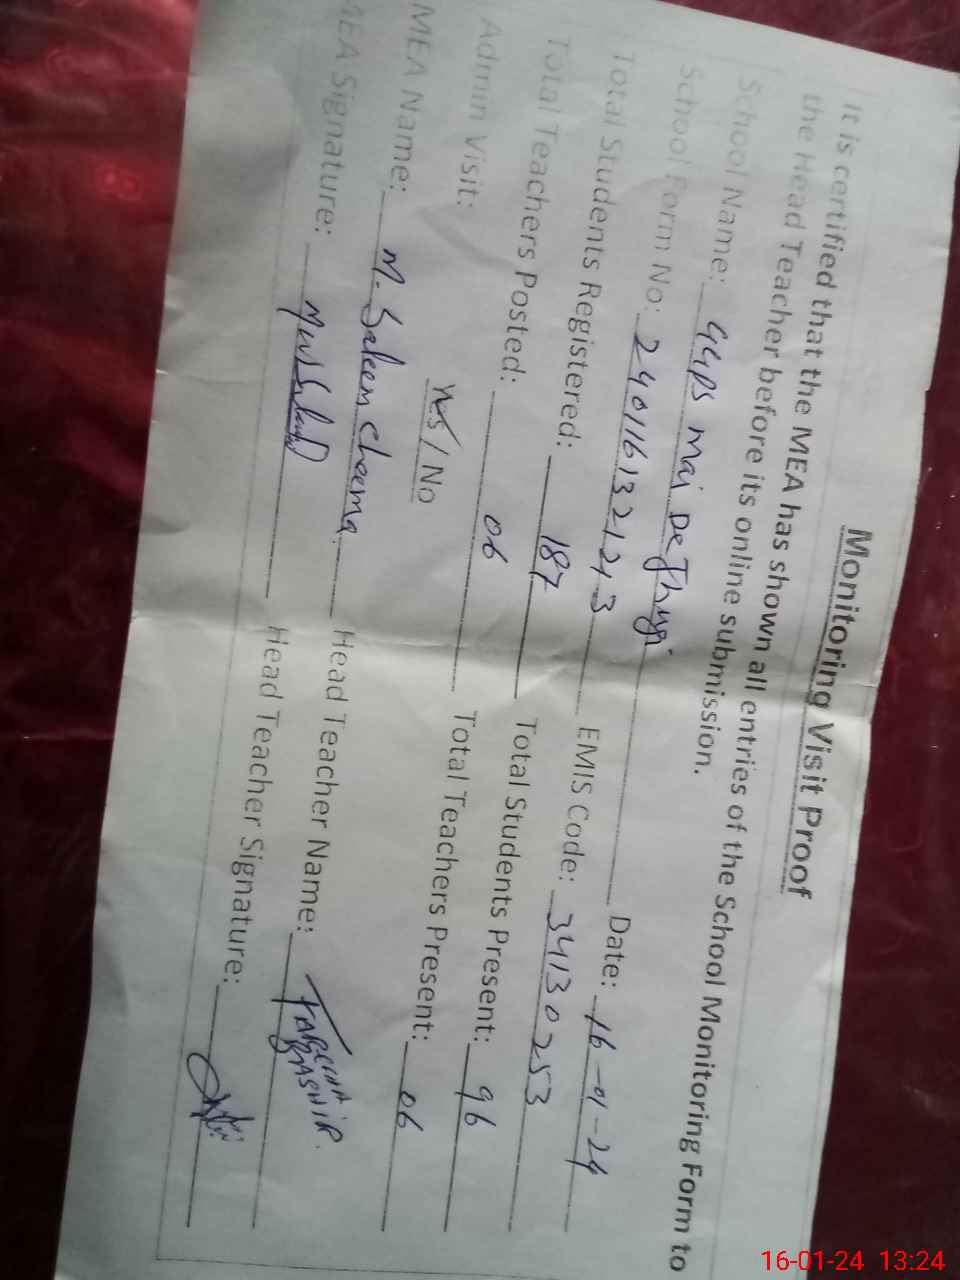 Monitoring Visit Proof
It is certified that the MEA has shown all entries of the School Monitoring Form to
the Head Teacher before its online submission.
School Name: GGPS Mai De Jhugi Date: 16-01-24
School Form No: 2401161321243 EMIS Code: 34130253
Total Students Registered: 187 Total Students Present: 96
Total Teachers Posted: 06 Total Teachers Present: 06
Admin Visit: Yes / No
MEA Name: M. Saleem Cheema Head Teacher Name:
MEA Signature: Head Teacher Signature:
16-01-24 13:24